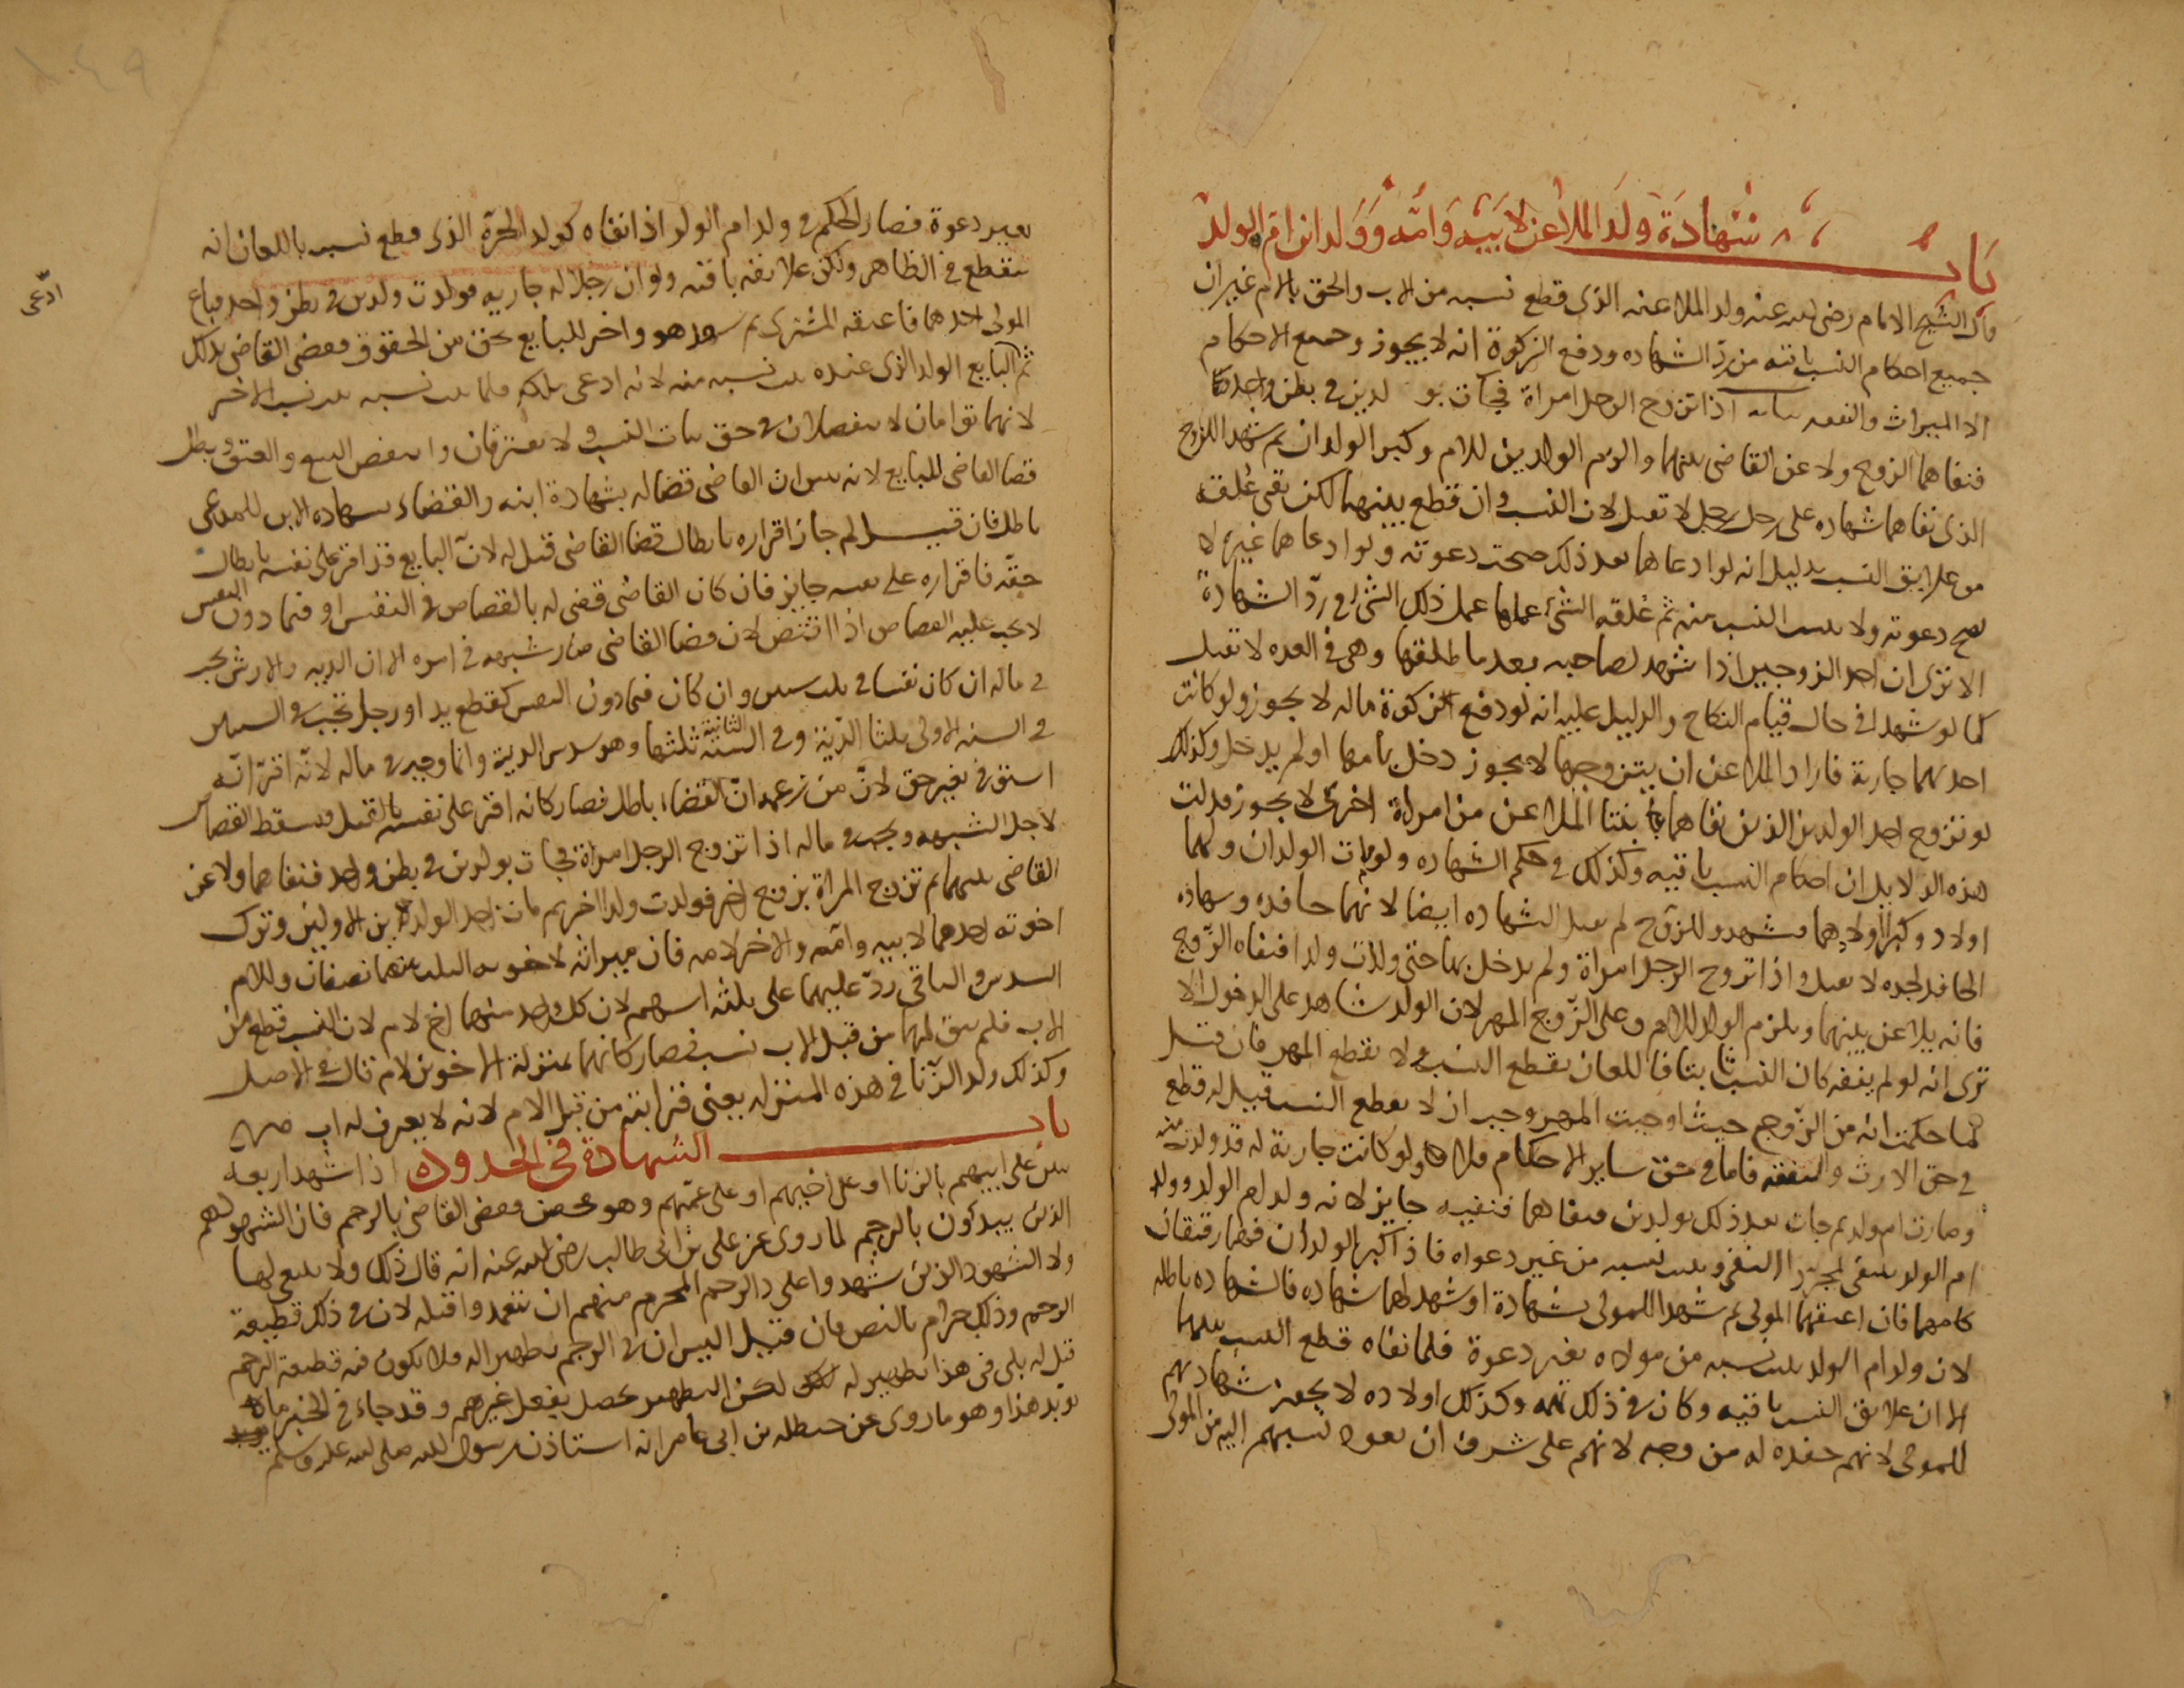 باب شهادة ولد الملاعن لابيه وامه وولد ابن ام الولد
قال الشيخ الامام رضى الله عنه ولد الملاعنه الذى قطع نسبه من الاب والحق بالام غير ان
جميع احكام النسب باقيه من ردّ الشهاده ودفع الزكوة انه لا يجوز وجميع الاحكام
الا الميراث والنفقه اذا تزوج الرجل امراة فجات بو لدين فى بطن واحد
فنفاهما الزوج ولاعن القاضى بينهما والزم الولدين للام وكبر الولدان ثم شهدا للزوج
الذى نفاهما شهاده على رجل لا تقبل لان النسب وان قطع بينهما لكن بقى عُلقة
من علايق النسب بدليل انه لو ادعاهما بعد ذلك صحت دعوته ولو ادعاهما غيره لا
تصح دعوته ولا يثبت النسب منه ثم عُلقه الشئ عملها عمل ذلك الشئ فى ردّ الشهادة
الا ترى ان احد الزوجين اذا شهد لصاحبه بعد ما طلقها وهى فى العده لا تقبل
كما لو شهد فى حال قيام النكاح والدليل عليه انه لو دفع الزكوة ماله لا يجوز ولو كانت
احدهما جارية فاراد الملاعن ان يتزوجها لا يجوز دخل بامها او لم يدخل وكذلك
لو تزوج احد الولدين الذين نفاهما بنتا الملاعن من امراة اخرى لا يجوز فدلت
هذه الدلايل ان احكام النسب باقيه وكذلك فى حكم الشهاده ولو مات الولدان ولهما
اولاد وكبر اولادهما فشهدوا للزوج لم تقبل الشهاده ايضا لانهما حافده وشهاده
الحافد لجده لا تقبل واذا تزوج الرجل امراة ولم يدخل بها حتى ولدت ولدا فنفاه الزّوج
فانه يلاعن بينهما ويلزم الولد للام وعلى الزّوج المهر لان الولد شاهد على الدخول الا
ترى انه لو لم ينفه كان النسب ثابتا فاللعان يقطع النسب ولا يقطع المهر فان قيل
لما حكمت انه من الزّوج حيث اوجبت المهر وجب ان لا يقطع النسب قيل له قطع
فى حق الارث والنفقه فاما فى حق ساير الاحكام فلا ولو كانت جارية له قد ولدت منه
وصارت ام ولد ثم جات بعد ذلك بولدين فنفاهما فنفيه جايز لانه ولد ام الولد وولد
ام الولد ينتفى بمجرد النفى ويثبت نسبه من غير دعواه فاذا كبر الولدان فصارا رقيقان
كامهما فان اعتقهما المولى ثم شهدا للمولى بشهادة او شهد لهما شهاده فالشهاده باطله
لان ولد ام الولد يثبت نسبه من مولاه بغير دعوة فلما نفاه قطع النسب بينهما
الا ان علايق النسب باقيه وكان فى ذلك تهمه وكذلك اولاده لا يجوز شهادتهم
للمولى لانهم حفده له من وجه لانهم على شرف ان يعود نسبهم اليه من المولى
بغير دعوة فصار الحكم فى ولد ام الولد اذا نفاه كولد الحرّة الذى قطع نسبه باللعان انه
ينقطع فى الظاهر ولكن علايقه باقيه ولو ان رجلا له جاريه فولدت ولدين فى بطن واحد فباع
المولى احدهما فاعتقه المشترى ثم شهد هو واخر للبايع بحق من الحقوق فقضى القاضى بذلك
ثم البايع الولد الذى عنده يثبت نسبه منه لانه ادعى ملكه فلما يثبت نسبه يثبت نسب الاخر
ادّعى
لانهما توامان لا ينفصلان فى حق ثبات النسب ولا يفترقان وانتقض البيع والعتق وبطل
قضا القاضى للبايع لانه تبين ان القاضى قضا له بشهادة ابنه والقضاء بشهاده الابن للمدعى
باطل فان قيل لم جاز اقراره بابطال قضا القاضى قيل له لانّ البايع قد اقر على نفسه بابطال
حقّه فاقراره على نفسه جايز فان كان القاضى قضى له بالقصاص فى النفس او فيما دون النفس
لا يجب عليه القصاص اذا اقتص لان قضا القاضى صار شبهه فى امره الا ان الديه والارش يجب
فى ماله ان كان نفسا فى ثلث سنين وان كان فيما دون النفس كقطع يد او رجل تجب فى السنتين
فى السنه الاولى ثلثا الدّية وفى السّنة الثانية ثلثها وهو سدس الدية وانما وجب فى ماله لانّه اقرّ انّه
استوفى بغير حق لانّ من زعمه انّ القضاء باطل فصار كانه اقر على نفسه بالقتل فسقط القصاص
لاجل الشبهه ويجب فى ماله اذا تزوج الرجل امراة فجات بولدين فى بطن واحد فنفاهما ولاعن
القاضى بينهما ثم تزوج المراة بزوج اخر فولدت ولدا اخر ثم مات احد الولدين الاولين وترك
اخوته احدهما لابيه وامّه والاخر لامه فان ميراثه لاخويه الثلث بينهما نصفان وللام
السدس والباقى ردّ عليهما على ثلثه اسهم لان كل واحد منهما اخ لام لان النسب قطع من
الاب فلم يبق لهما من قبل الاب نسب فصار كانهما بمنزلة الاخوين لام قال فى الاصل
وكذلك ولد الزّنا فى هذه المنزله يعنى قرابته من قبل الام لانه لا يعرف له اب صح
باب الشهادة فى الحدود اذا شهد اربعه
بنين على ابيهم بالزنا او على اخيهم او على عمّهم وهو محصن فقضى القاضى بالرجم فان الشهود هم
الذين يبدءون بالرجم لما روى عن على بن ابى طالب رضى الله عنه انه قال ذلك ولا ينبغى لها
ولا الشهود الذين شهدوا على ذا الرحم المحرم منهم ان يتعمدوا قتله لان فى ذلك قطيعة
الرحم وذلك حرام بالنص فان قيل اليس ان فى الرجم تطهيرا له فلا يكون فيه قطيعة الرحم
قيل له بلى فى هذا تطهير له لكن التطهير يحصل بفعل غيرهم وقد جاء فى الخبر ما
يويد هذا وهو ما روى عن حنظله بن ابى عامر انه استاذن رسول الله صلى الله عليه وسلم